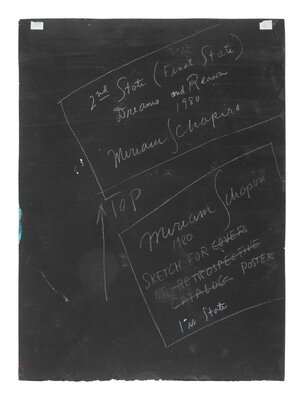 2nd State (Final State)
Dreams and Reason
1980
Miriam Schapiro
TOP
Miriam Schapiro
1980
SKETCH FOR COVER
RETROSPECTIVE
CATALOG POSTER
1st State